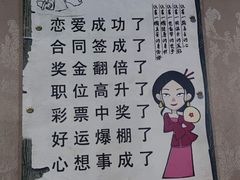 恋爱成功了
合同签成了
奖金翻倍了
职位高升了
彩票中奖了
好运爆棚了
心想事成了